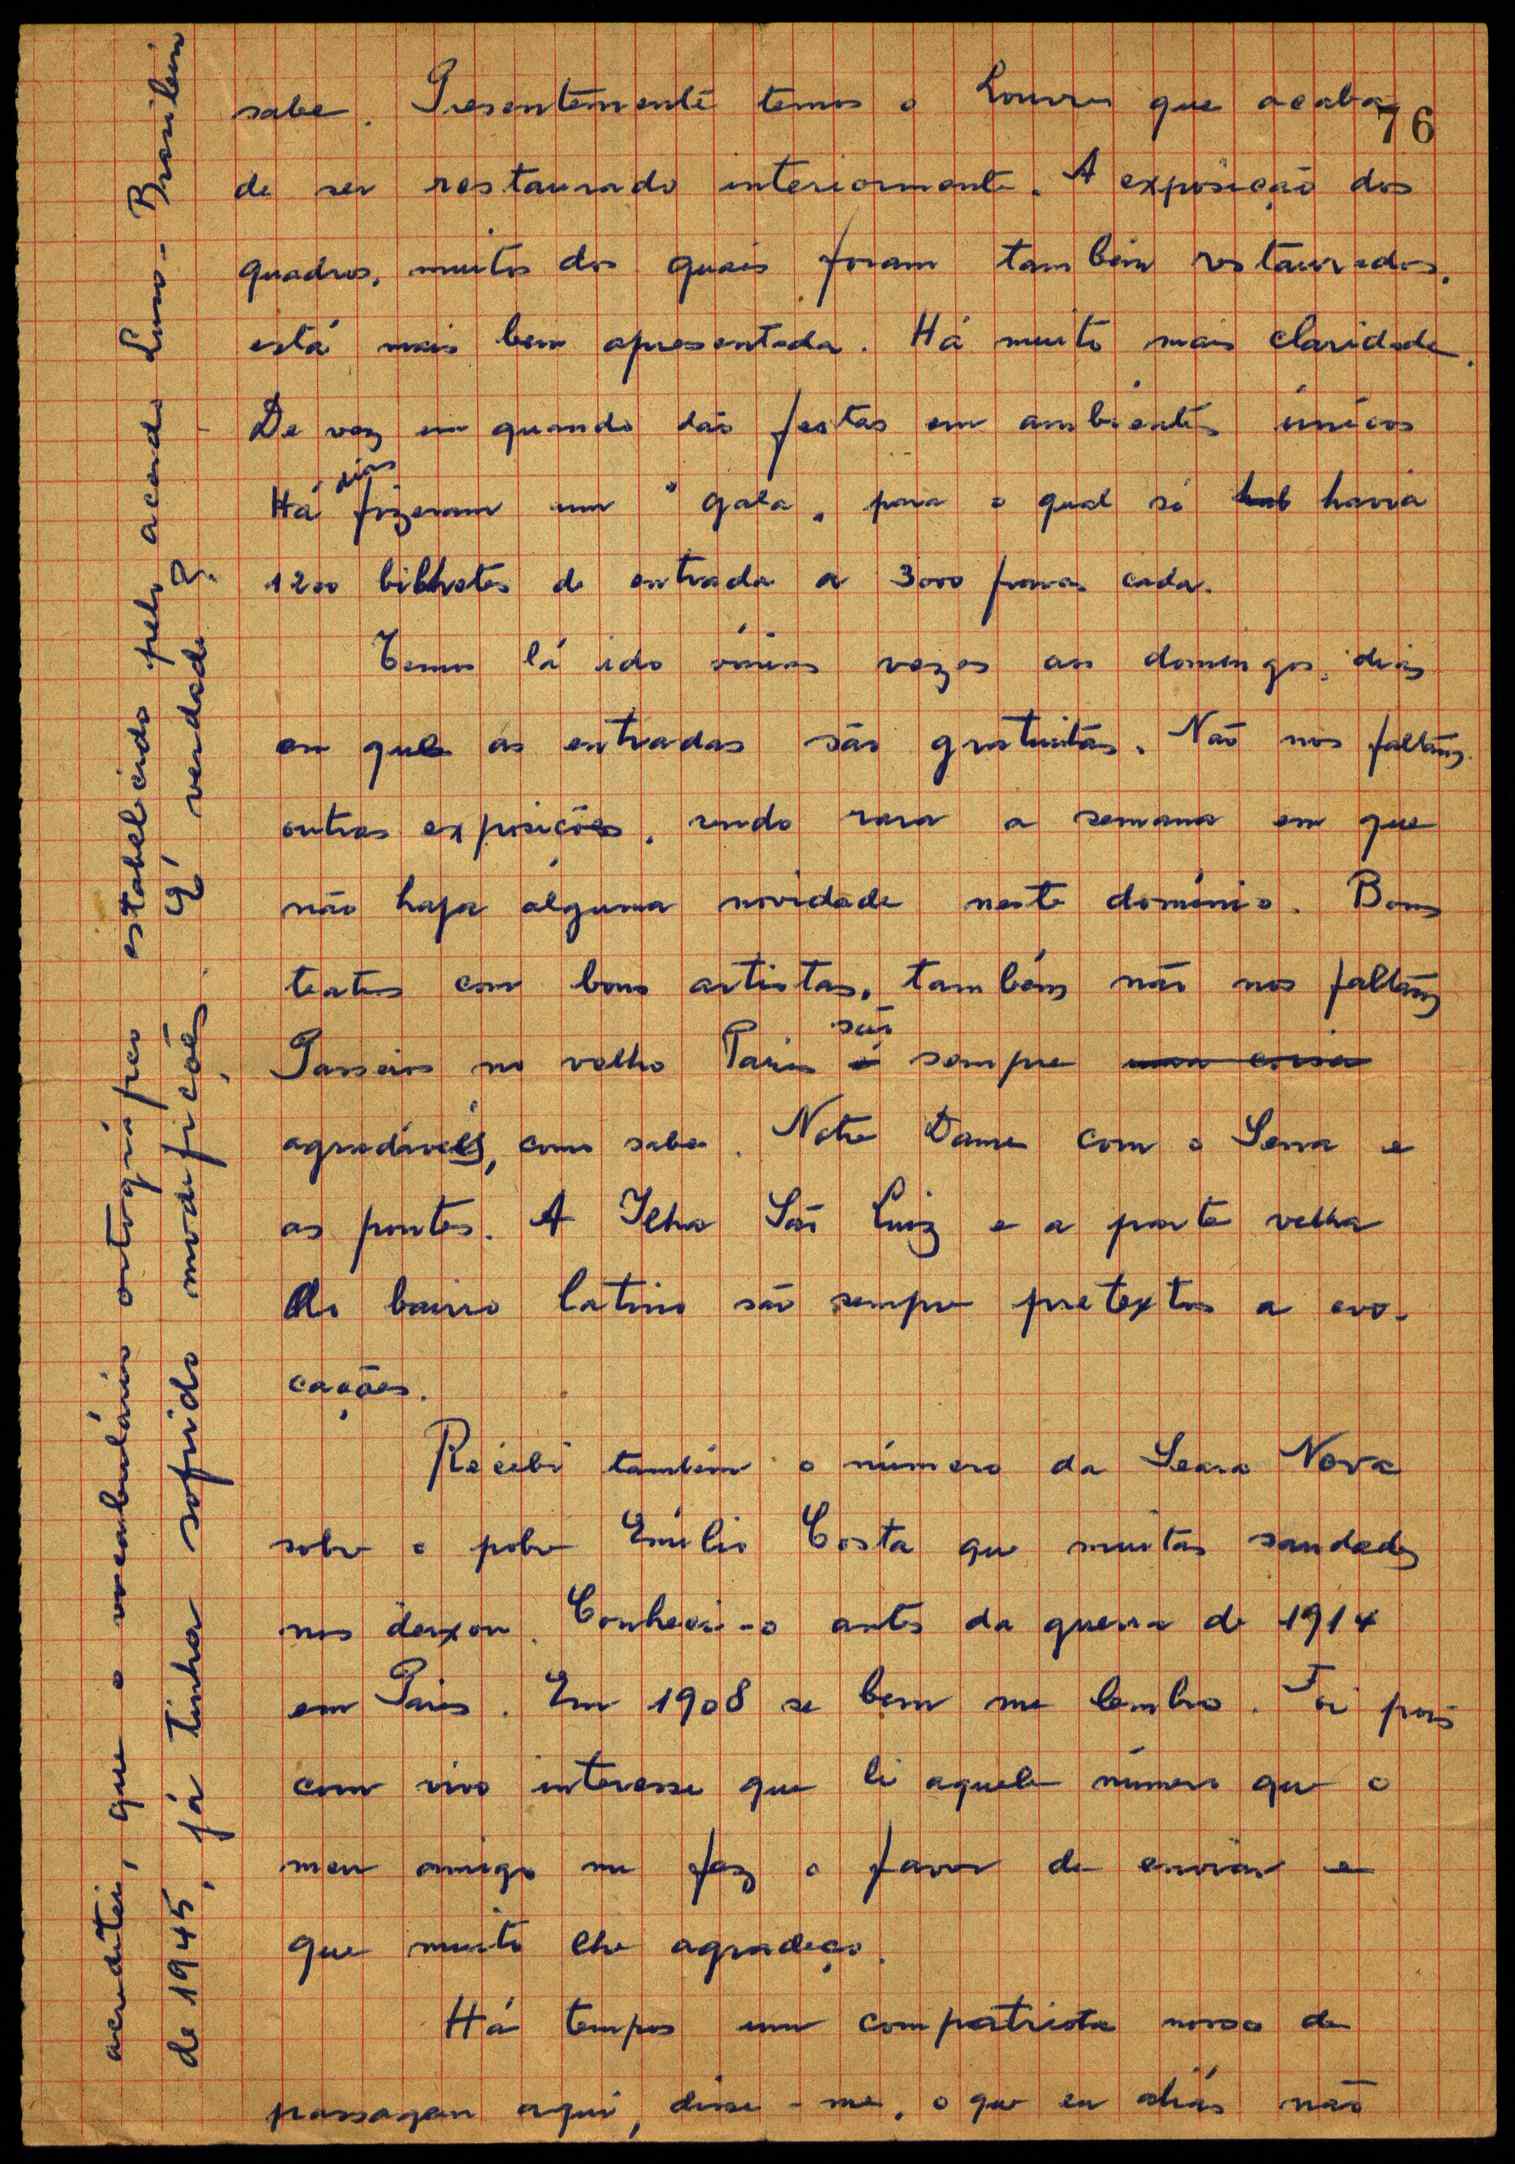 76
sabe. Presentemente temos o Louvre que acaba
de ser restaurado interiormente. A exposição dos
quadros, muitos dos quais foram tambem restaurados,
está mais bem apresentada. Há muito mais claridade.
De vez em quando dão festas em ambientes únicos
Há dias fizeram um "gala, para o qual só hab havia
1200 bilhetes de entrada a 3000 francos cada.
Temos lá ido várias vezes aos domingos, dias
em que as entradas são gratuitas. Não nos faltam
outras exposições, sendo rara a semana em que
não haja alguma novidade neste domínio. Bons
teatros com bons artistas, também não nos faltam
Passeios no velho Paris é são sempre uma coisa
agradáveis, como sabe. Notre Dame com o Sena e
as pontes. A Ilha São Luiz e a parte velha
do bairro latino são sempre pretextos a evo-
cações.
Recebi também o número da Seara Nova
sobre o pobre Emílio Costa que muitas saudades
nos deixou. Conheci-o antes da guerra de 1914
em Paris. Em 1908 se bem me lembro. Foi pois
com vivo interesse que li aquele número que o
meu amigo me faz o favor de enviar e
que muito lhe agradeço.
Há tempos um compatriota nosso de
passagem aqui, disse-me, o que eu aliás não
acreditei, que o vocabulário ortográfico estabelecido pelo acordo Luso-Brasileiro
de 1945, já tinha sofrido modificações. É verdade?